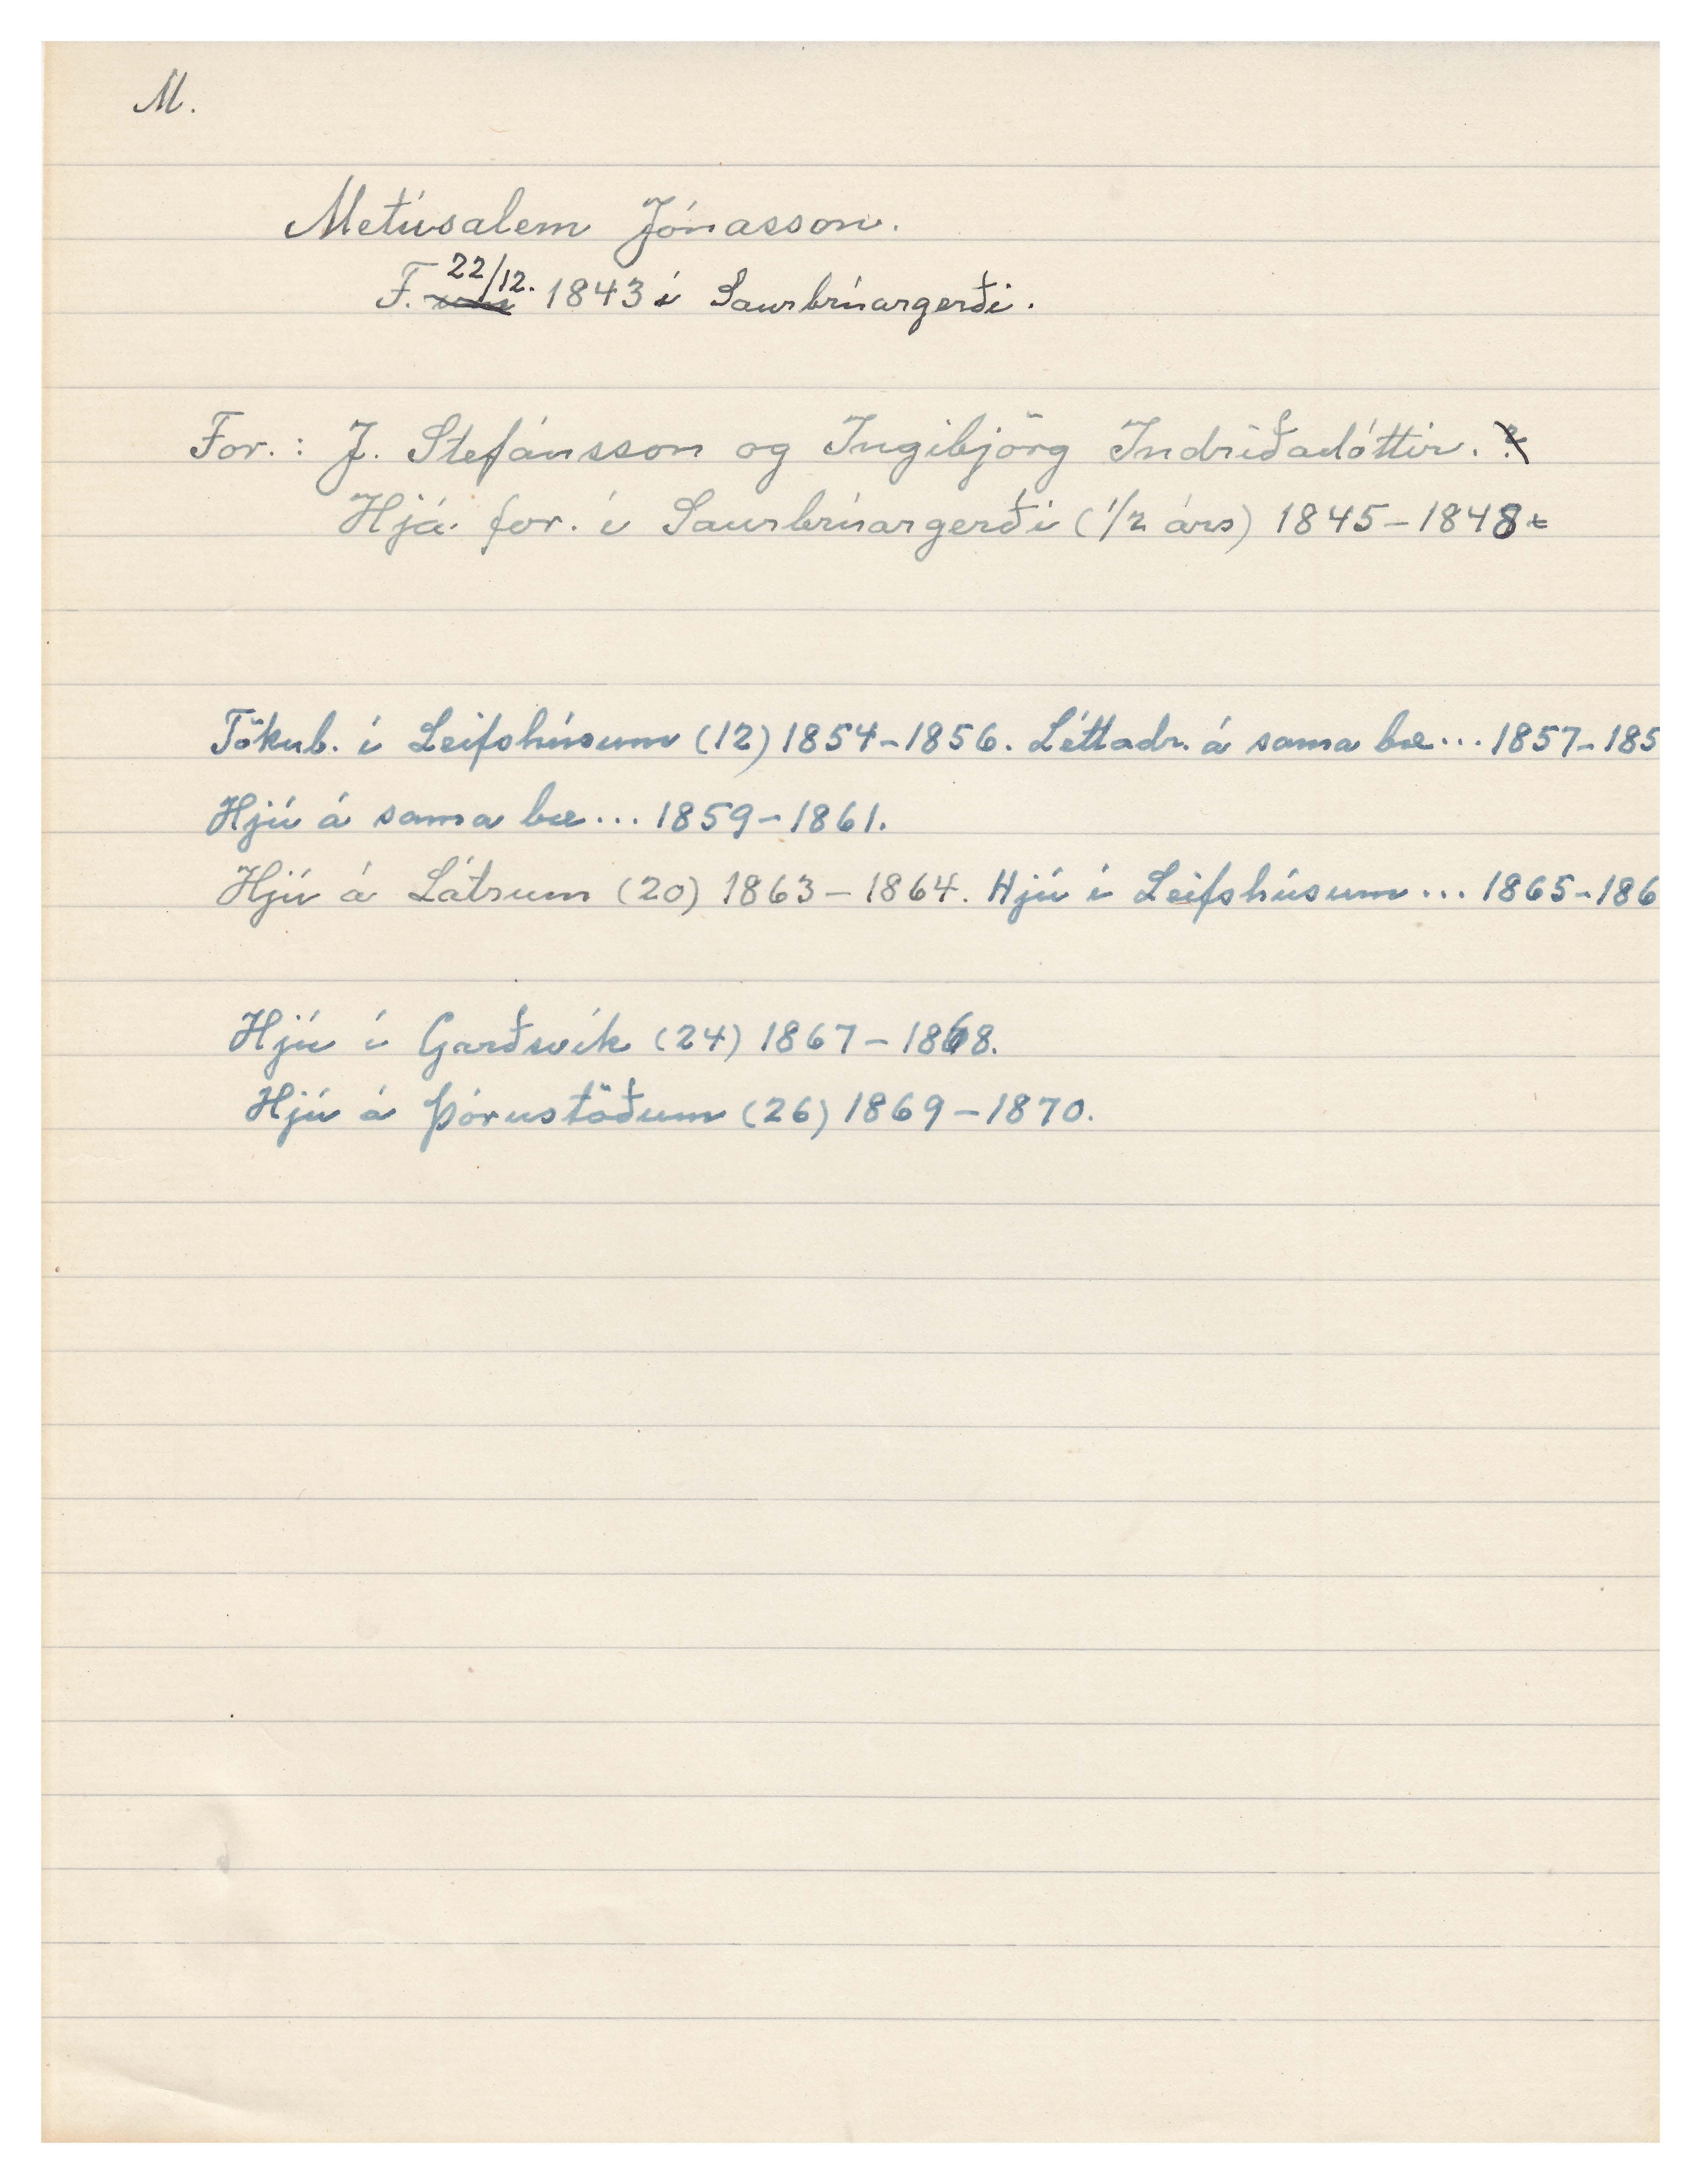 M.
Metúsalem Jónasson.
F. 22/12. 1843 í Saurbrúargerði.
For.: J. Stefánsson og Ingibjörg Indriðadóttir.
Hjá for. í Saurbrúargerði (1/2 árs) 1845-1848.
Tökub. í Leifshúsum (12) 1854-1856. Léttadr. á sama bæ... 1857-185
Hjú á sama bæ... 1859-1861.
Hjú á Látrum (20) 1863-1864. Hjú í Leifshúsum... 1865-186
Hjú í Garðsvík (24) 1867-1868.
Hjú á Þórustöðum (26) 1869-1870.